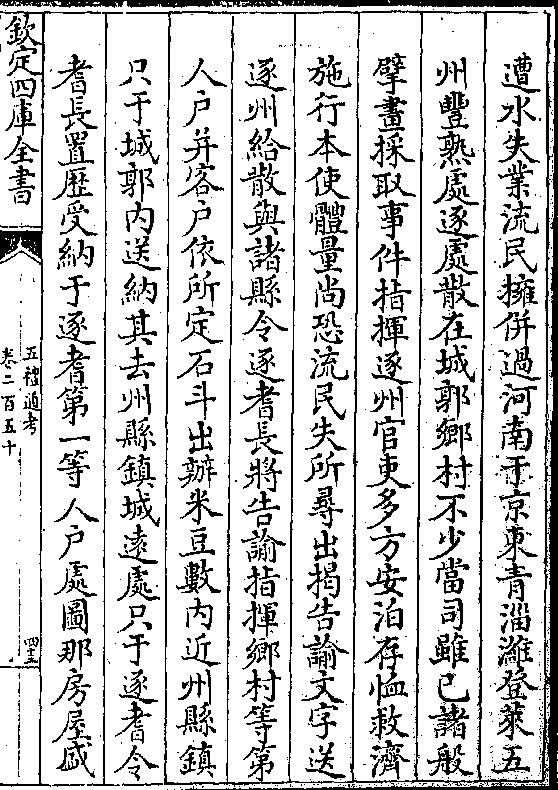 遭水失業流民擁併過河南于京東青淄濰登萊五
州豐熟處逐處散在城郭鄉村不少當司雖已諸般
擘畫採取事件指揮逐州官吏多方安泊存恤救濟
施行本使體量尚恐流民失所尋出掲告諭文字送
逐州給散與諸縣令逐耆長將告諭指揮鄉村等第
人户并客户依所定石斗出辦米豆數內近州縣鎮
只于城郭內送納其去州縣鎮城遠處只于逐耆令
耆長置歴受納于逐耆第一等人户處圖那房屋盛
欽定四庫全書
五禮通考
卷二百五十
四十三